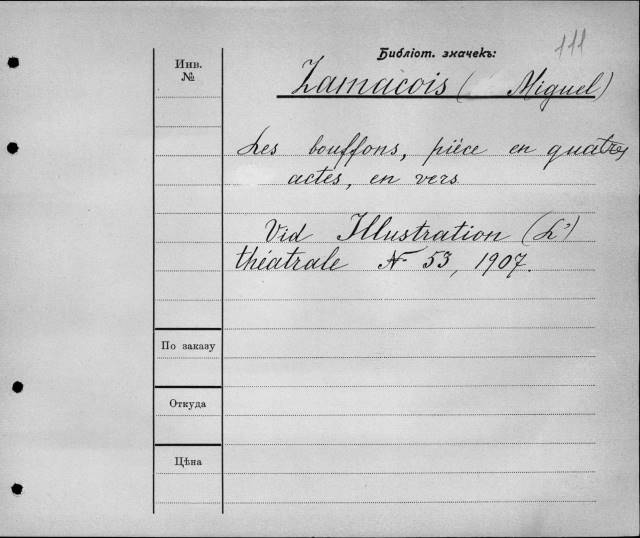 Библіот. значекъ:
111
Инв.
№
Zamacoïs (Miguel)
Les bouffons, pièce en quatres
actes, en vers
Vid Illustration (L')
théatrale № 53, 1907.
По заказу
Откуда
Цѣна